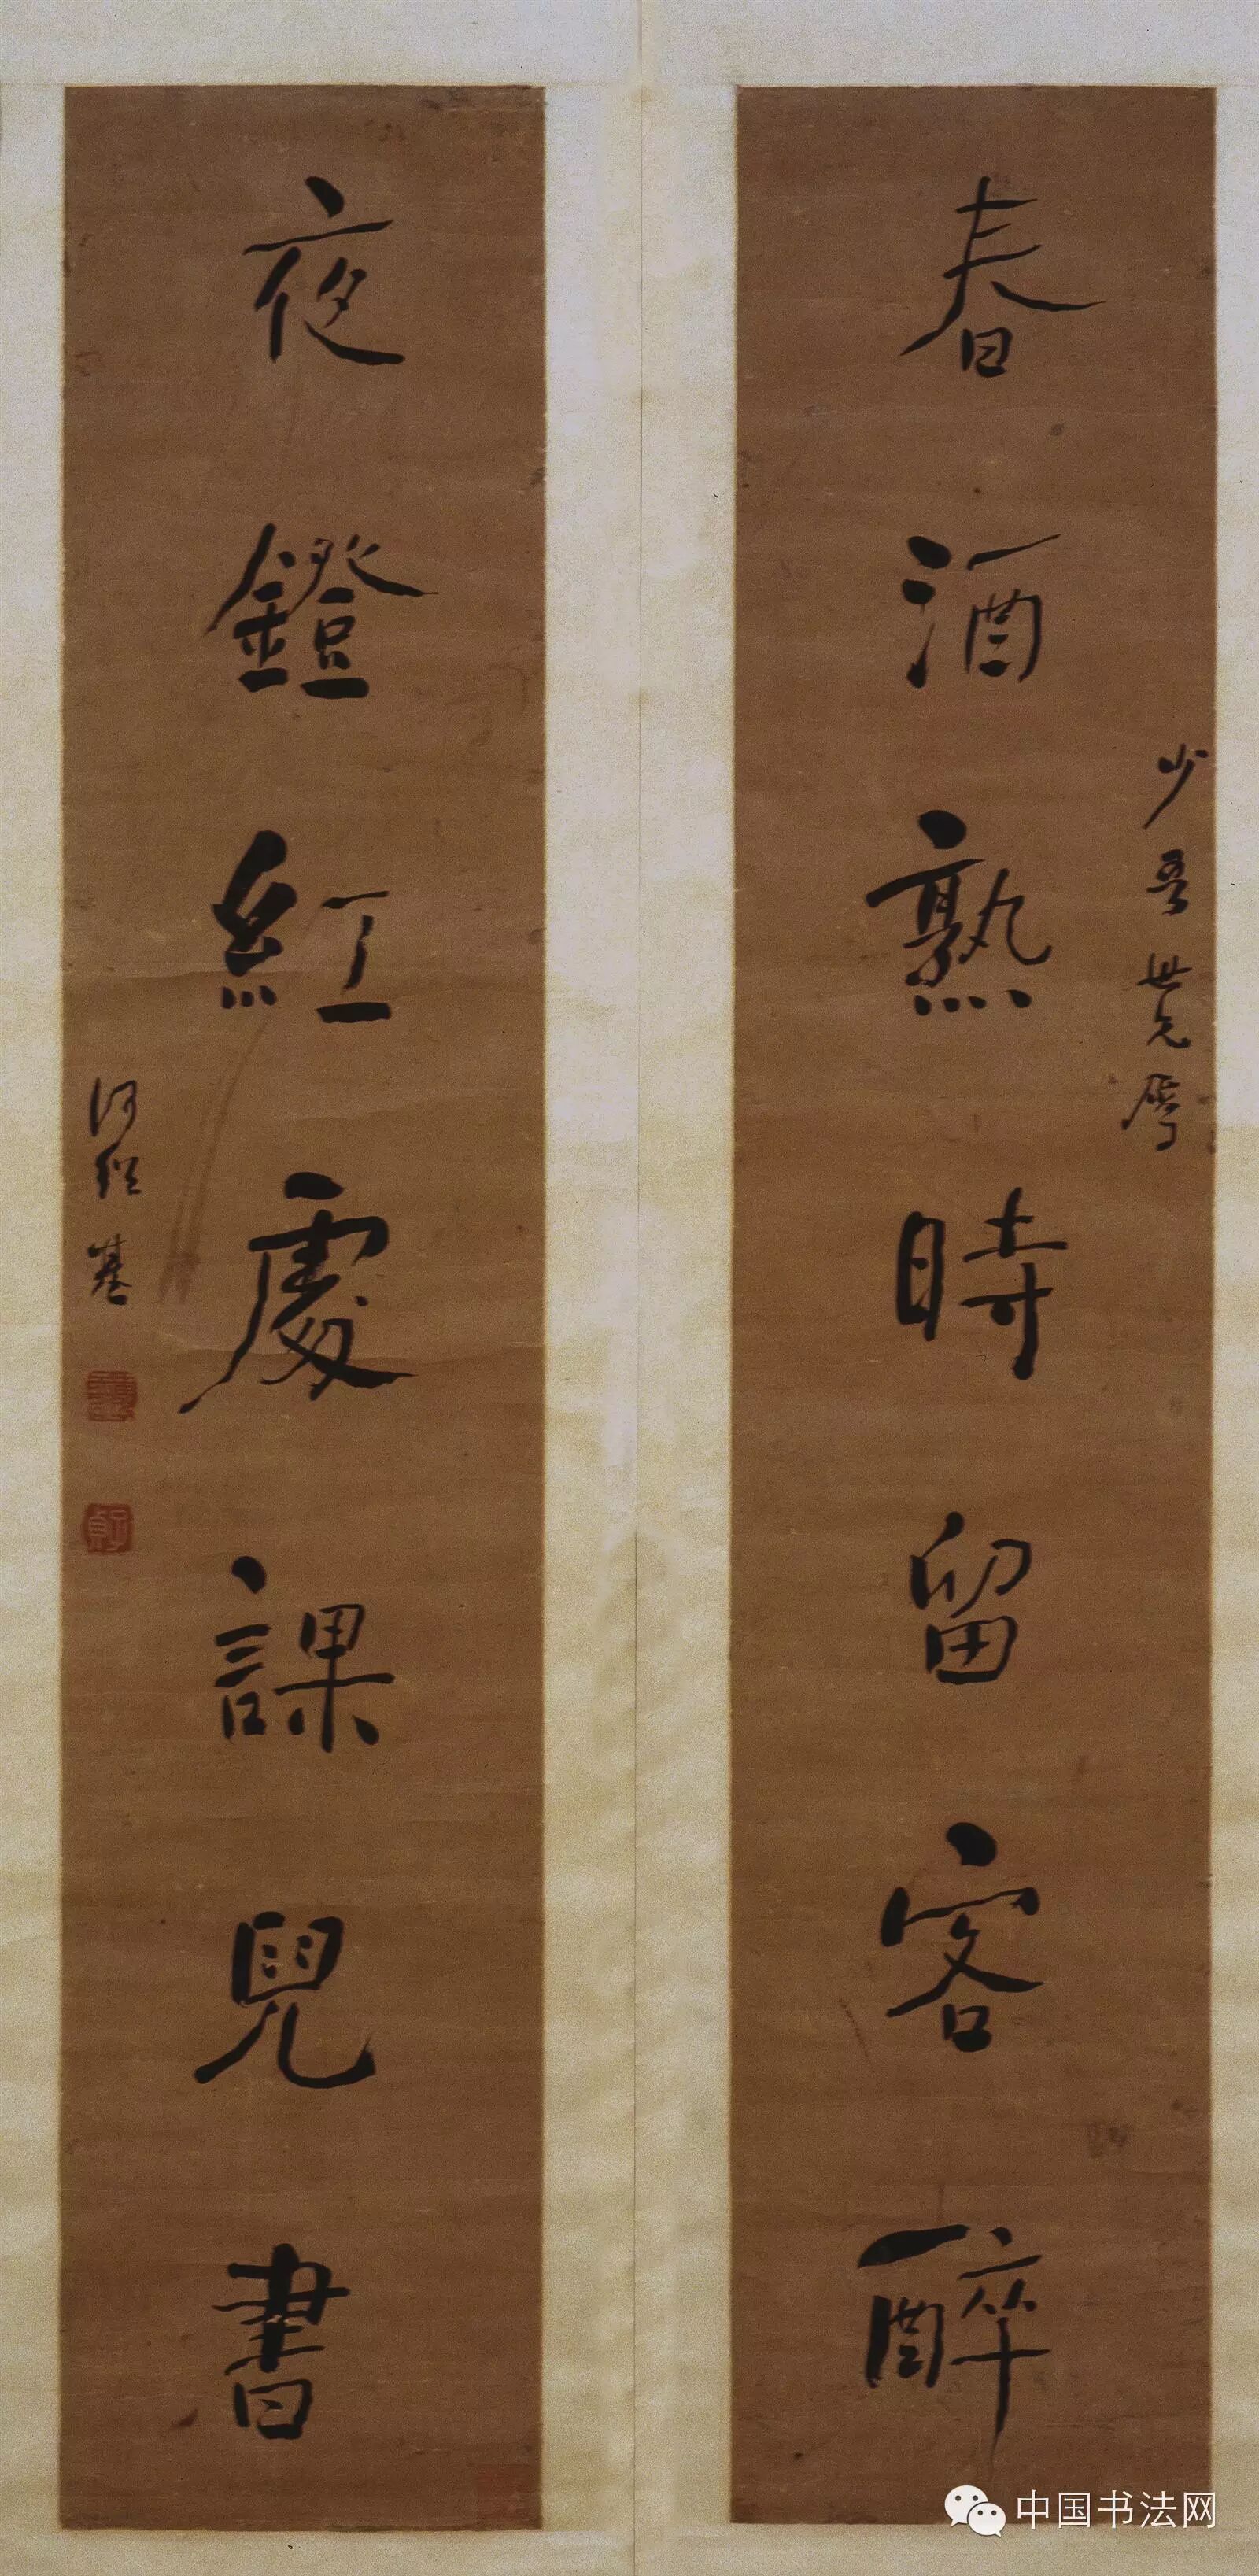 春酒熟時留客醉
少吾世兄屬
夜鐙紅處課兒書
何紹基
子貞
中国书法网